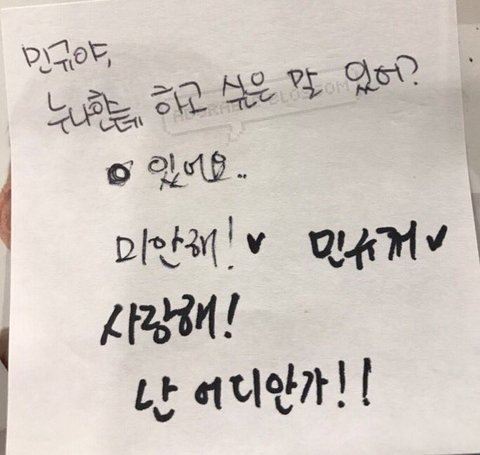 민규야,
누나한테 하고 싶은 말 있어?
있어요..
미안해!♥ 민규꺼♥
사랑해!
난 어디안가!!